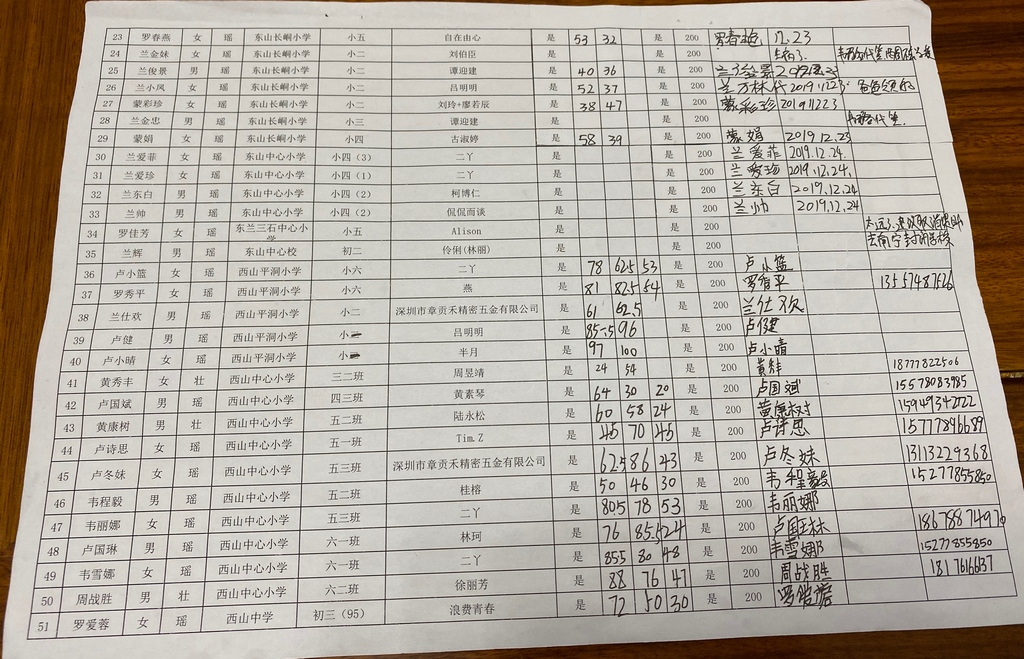 23 罗春燕 女 瑶 东山长峒小学 小五 自在由心 是 53 32 是 200 罗春艳 12.23
24 兰金妹 女 瑶 东山长峒小学 小二 刘伯臣 是 是 200
25 兰俊景 男 瑶 东山长峒小学 小二 谭迎建 是 40 36 是 200
26 兰小凤 女 瑶 东山长峒小学 小二 吕明明 是 52 37 是 200 2019.12.23
27 蒙彩珍 女 瑶 东山长峒小学 小二 刘玲+廖若辰 是 38 47 是 200 蒙彩珍 20191223
28 兰金忠 男 瑶 东山长峒小学 小三 谭迎建 是 是 200
29 蒙娟 女 瑶 东山长峒小学 小四 古淑婷 是 58 39 是 200 蒙娟 2019.12.23
30 兰爱菲 女 瑶 东山中心小学 小四（3） 二丫 是 是 200 兰爱菲 2019.12.24.
31 兰爱珍 女 瑶 东山中心小学 小四（1） 二丫 是 是 200 兰爱珍 2019.12.24.
32 兰东白 男 瑶 东山中心小学 小四（2） 柯博仁 是 是 200 兰东白 2019.12.24
33 兰帅 男 瑶 东山中心小学 小四（2） 侃侃而谈 是 是 200 兰帅 2019.12.24
34 罗佳芳 女 瑶 东兰三石中心小学 小五 Alison 是 是 200
35 兰辉 男 瑶 东山中心校 初二 伶俐(林丽) 是 是 200
36 卢小篮 女 瑶 西山平洞小学 小六 二丫 是 78 62.5 53 是 200 卢小篮
37 罗秀平 女 瑶 西山平洞小学 小六 燕 是 81 82.5 54 是 200 13557487626
38 兰仕欢 男 瑶 西山平洞小学 小二 深圳市章贡禾精密五金有限公司 是 61 62.5 是 200 兰仕欢
39 卢健 男 瑶 西山平洞小学 小 吕明明 是 85.5 96 是 200
40 卢小晴 女 瑶 西山平洞小学 小 半月 是 97 100 是 200 卢小晴
41 黄秀丰 女 壮 西山中心小学 三二班 周昱靖 是 24 54 是 200 18777822506
42 卢国斌 男 瑶 西山中心小学 四三班 黄素琴 是 64 30 20 是 200 卢国斌 15578083985
43 黄康树 男 壮 西山中心小学 五二班 陆永松 是 60 58 24 是 200 黄康树 15949342722
44 卢诗思 女 瑶 西山中心小学 五一班 Tim.Z 是 45 70 45 是 200 卢诗思 15777896689
45 卢冬妹 女 瑶 西山中心小学 五三班 深圳市章贡禾精密五金有限公司 是 62.5 86 43 是 200 卢冬妹 13113229368
46 韦程毅 男 瑶 西山中心小学 五二班 桂榕 是 50 46 30 是 200 韦程毅 15277855850
47 韦丽娜 女 瑶 西山中心小学 五三班 二丫 是 80.5 78 53 是 200 韦丽娜
48 卢国琳 男 瑶 西山中心小学 六一班 林珂 是 76 85.5 24 是 200 卢国琳 18678874970
49 韦雪娜 女 瑶 西山中心小学 六一班 二丫 是 85.5 80 48 是 200 韦雪娜 15277855850
50 周战胜 男 壮 西山中心小学 六二班 徐丽芳 是 88 76 47 是 200 周战胜
51 罗爱蓉 女 瑶 西山中学 初三（95） 浪费青春 是 72 50 30 是 200